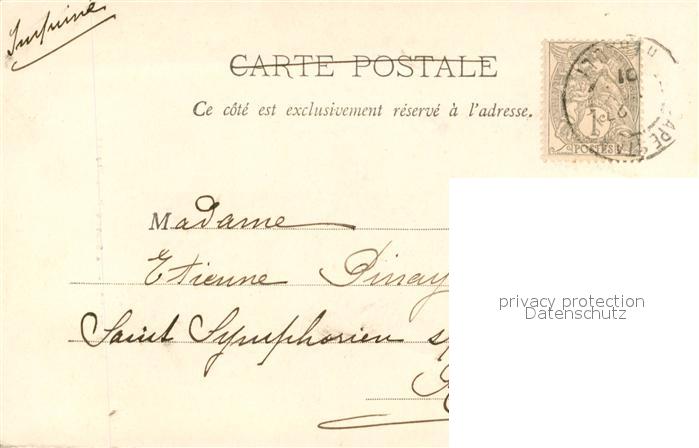 Imprimé
CARTE POSTALE
Ce côté est exclusivement réservé à l'adresse.
1c
POSTES
01
Madame
Etienne
Saint Symphorien s/
privacy protection
Datenschutz